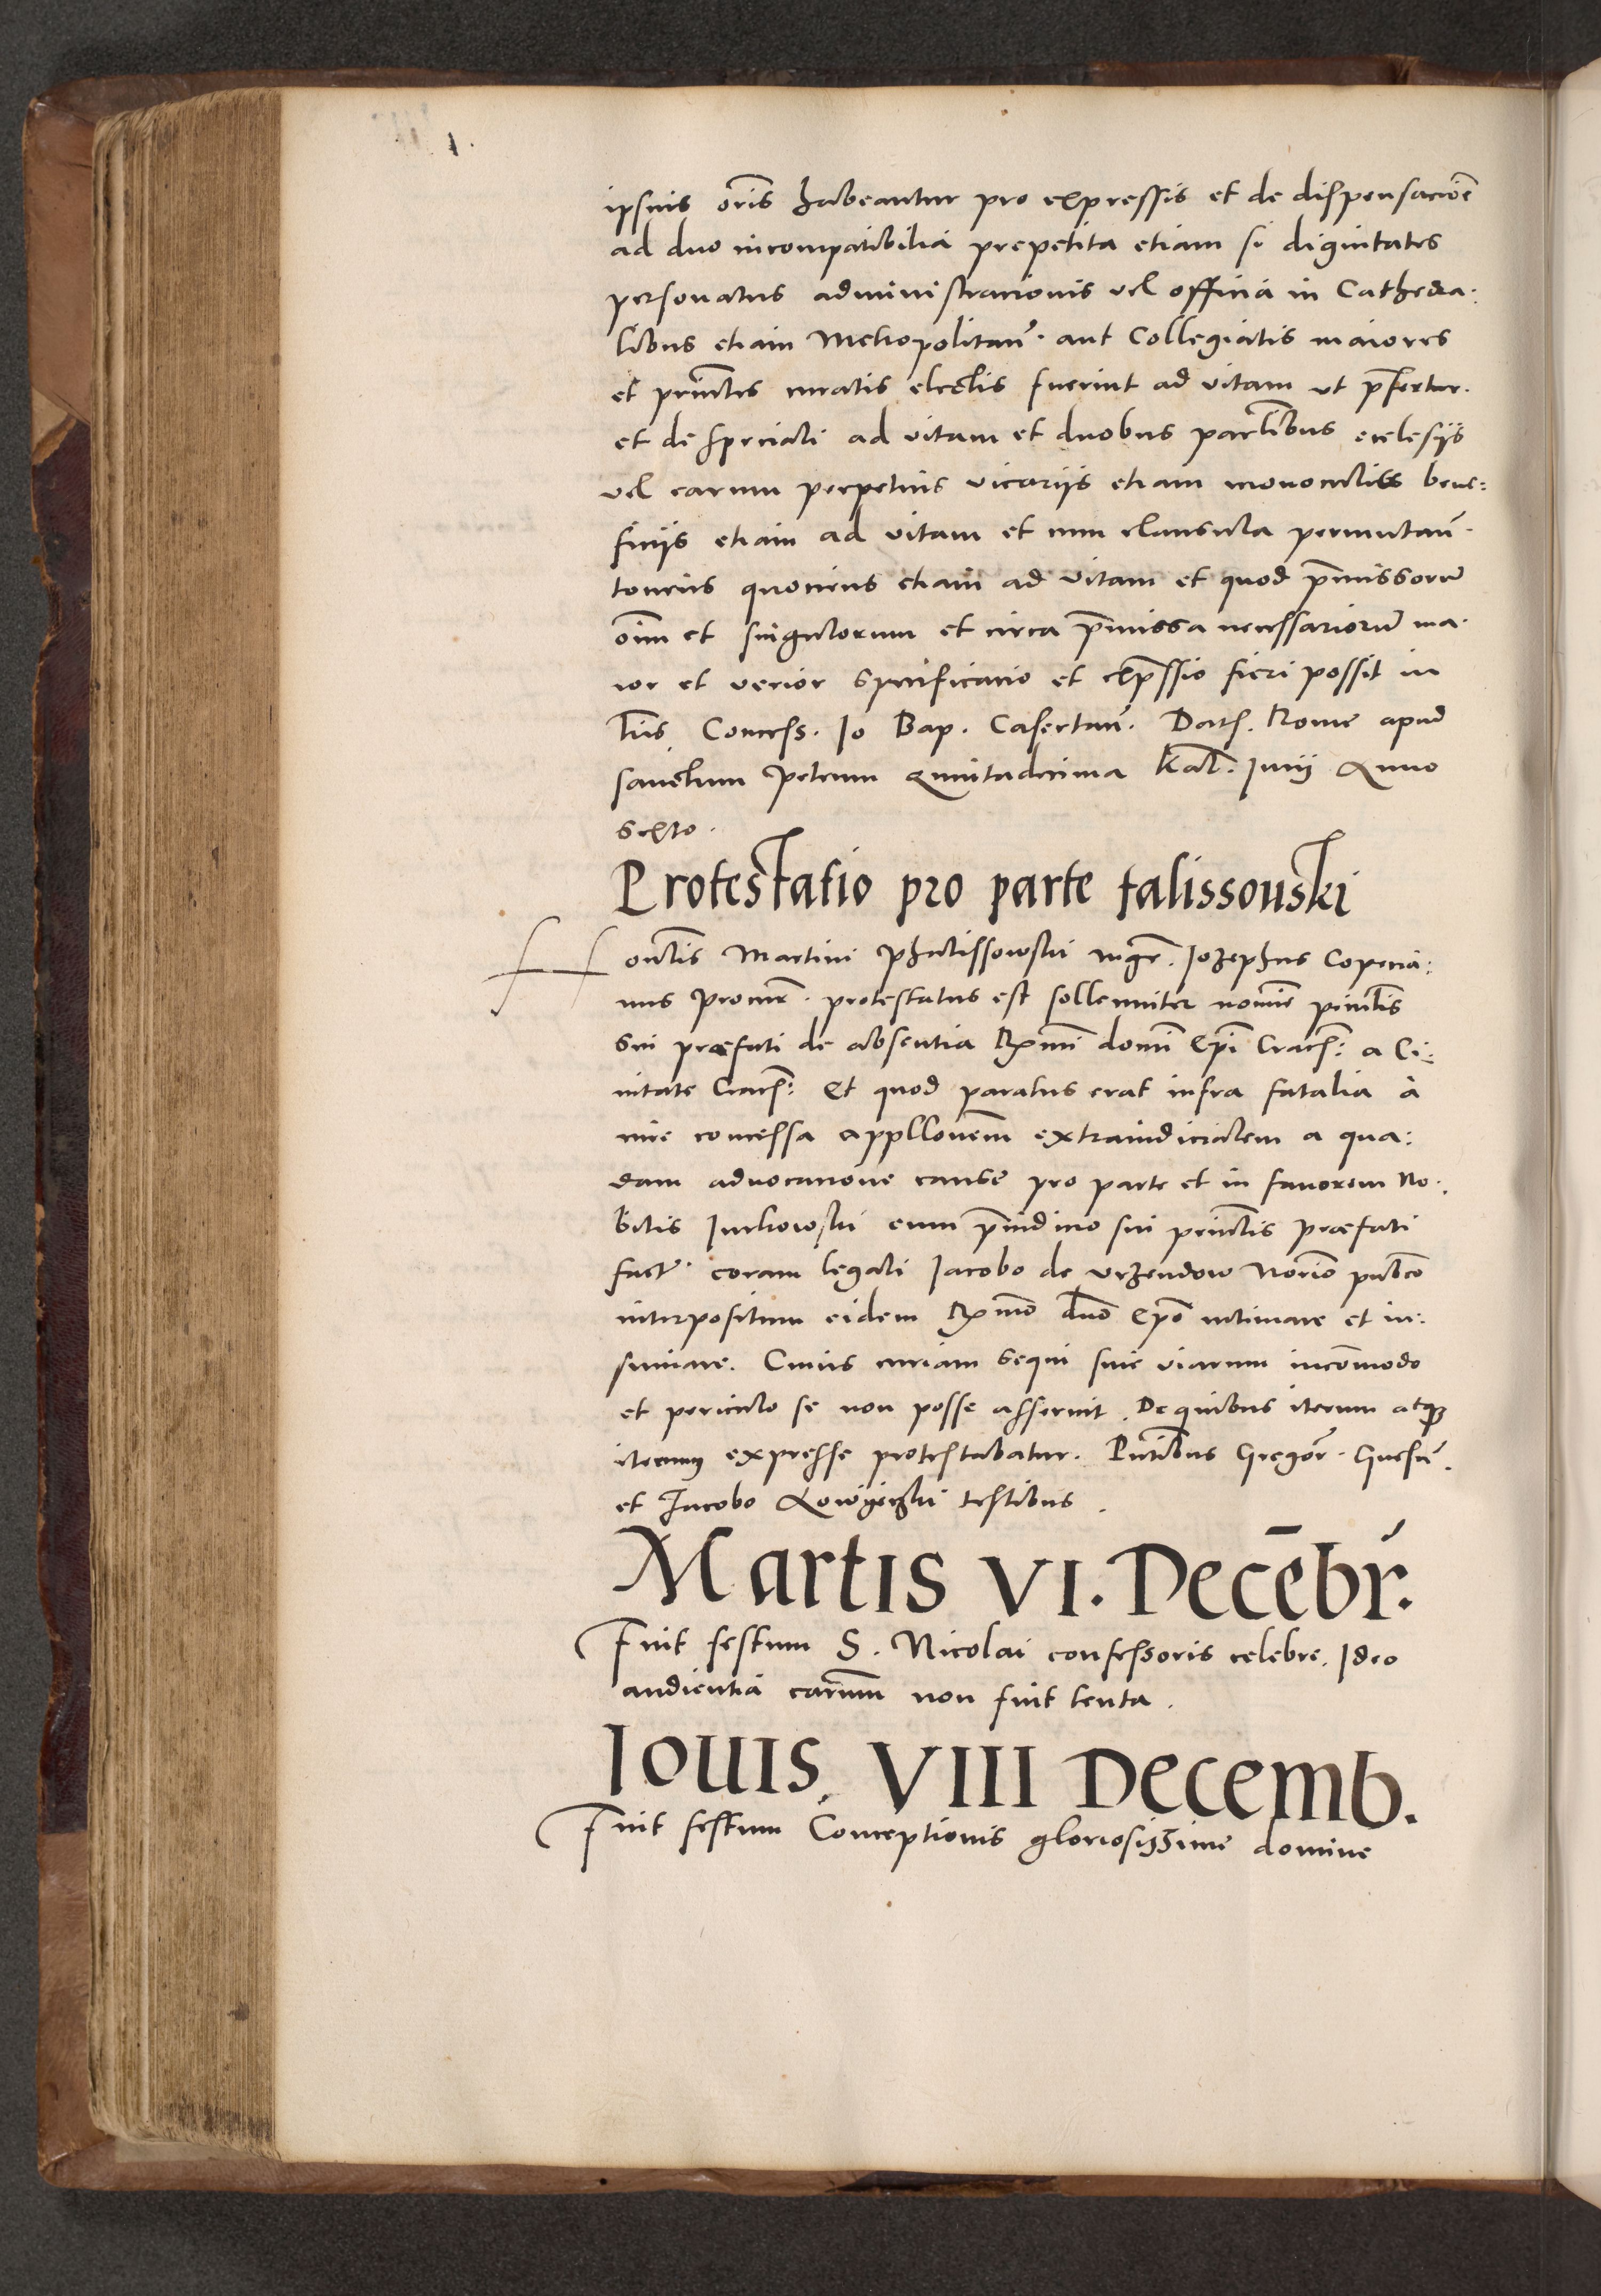 ipsius oris habeantur pro expressis et de dispensacione
ad duo incompatibilia prepetita etiam si dignitates
personatus administracionis vel officia in Cathedra:
libus etiam Metropolitan. aut Collegiatis maiores
et principales curatis electis fuerint ad vitam ut p̄fertur.
et de speciali ad vitam et duobus parlibus ecclesijs
vel earum perpetuis vicarijs etiam monoculis bene:
ficijs etiam ad vitam et cum clausula permutan.
tociens quociens etiam ad vitam et quod p̄missorū
oīm et singulorum et circa p̄missa necessariorū ma.
ior et verior specificacio et exp̄ssio fieri possit in
lris Concess. Io Bap. Casertan. Dats. Rome apud
sanctum Petrum Quintadecima kal. Iunij Anno
sexto.
Protestatio pro parte falissouski
Martini Phalissowski mgr. Iozephus Copecia:
nus procur. protestatus est sollenniter nomīe principalis
sui præfati de absentia Rx̄mi domī Epī Cracs: a Ci:
uitate Cracs: Et quod paratus erat infra fatalia à
iure concessa appllonem extraiudicialem a qua:
dam aduocatione cause pro parte et in fauorem No:
bilis Iurkowski cum p̄iudicio sui principalis præfati
fact. coram legali Iacobo de vrzendow Norio publico
interpositum eidem Rx̄mo dno Epo intimare et in:
sinuare. Cuius curiam sequi sine viarum incōmodo
et periculo se non posse asseruit. De quibus iterum atq3
iterum expresse protestabatur. Pntibus Gregor. Gnesn.
et Iacobo testibus.
Martis VI. Decēbr.
Fuit festum S. Nicolai confessoris celebre. Ideo
audientia causarum non fuit tenta.
Iouis. VIII Decemb.
Fuit festum Conceptionis gloriosissime domine